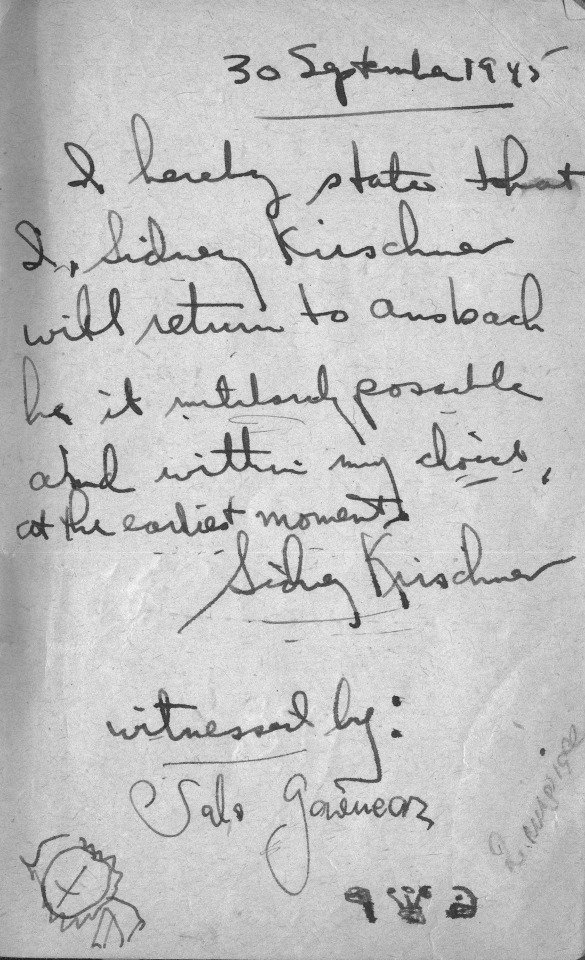 30 September 1945
I hereby state that
I, Sidney Kirschner
will return to Ansbach
be it militarily possible
and within my choice,
at the earliest moment.
Sidney Kirschner
witnessed by: